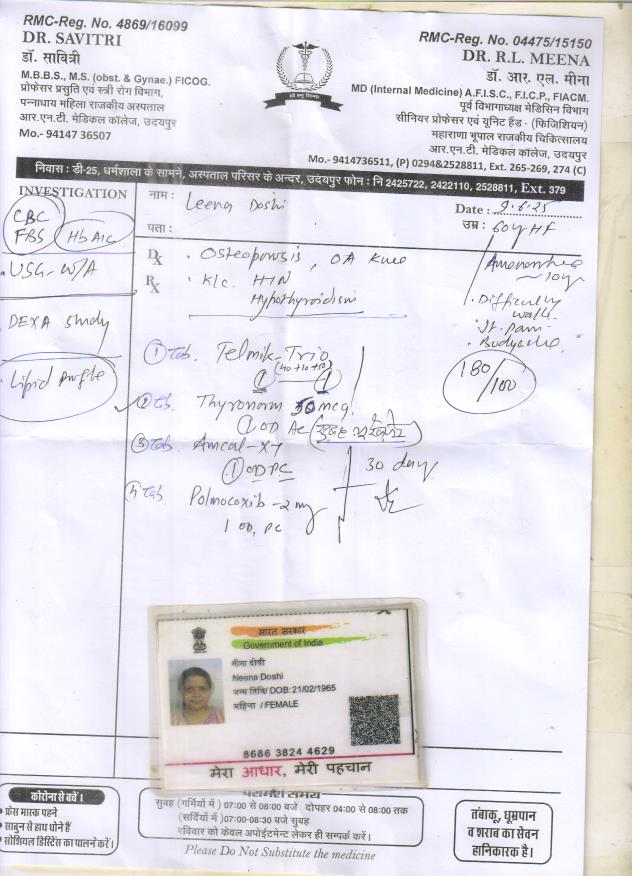 RMC-Reg. No. 4869/16099
DR. SAVITRI
डॉ. सावित्री
M.B.B.S., M.S. (obst. & Gynae.) FICOG.
प्रोफेसर प्रसुति एवं स्त्री रोग विभाग,
पन्नाधाय महिला राजकीय अस्पताल
आर.एन.टी. मेडिकल कॉलेज, उदयपुर
Mo.- 94147 36507
RMC-Reg. No. 04475/15150
DR. R.L. MEENA
डॉ. आर. एल. मीना
MD (Internal Medicine) A.F.I.S.C., F.I.C.P., FIACM.
पूर्व विभागाध्यक्ष मेडिसिन विभाग
सीनियर प्रोफेसर एवं यूनिट हैड - (फिजिशियन)
महाराणा भूपाल राजकीय चिकित्सालय
आर.एन.टी. मेडिकल कॉलेज, उदयपुर
Mo.- 9414736511, (P) 0294&2528811, Ext. 265-269, 274 (C)
निवास : डी-25, धर्मशाला के सामने, अस्पताल परिसर के अन्दर, उदयपुर फोन : नि 2425722, 2422110, 2528811, Ext. 379
INVESTIGATION
CBC
FBS HbA1c
USG-W/A
DEXA study
Lipid profile
नाम : Leena Doshi
Date : 9.6.25
पता :
उम्र : 60y HF
Dx . Osteoporosis, OA Knee
Rx . K/c. HTN
Hypothyroidism
Amenorrhea
~10y
. Difficulty
walk.
. Jt. pain
. Bodyache
180/100
① Tab. Telmik-Trio
(40+10+50)
1 1
② Tab. Thyronorm 50 mcg
1 OD AC
③ Tab. Amcal-X7
1 OD PC
30 day
④ Tab. Polmocoxib-2 mg
1 OD, PC
भारत सरकार
Government of India
नीना दोषी
Neena Doshi
जन्म तिथि/ DOB: 21/02/1965
महिला / FEMALE
8686 3824 4629
मेरा आधार, मेरी पहचान
कोरोना से बचें ।
• फ्रेस मास्क पहने
• साबुन से हाथ धोने हैं
• सोशियल डिस्टिेंस का पालने करें।
परामर्श समय
सुबह (गर्मियों में ) 07:00 से 08:00 बजे दोपहर 04:00 से 08:00 तक
(सर्दियों में) 07:00-08:30 बजे सुबह
रविवार को केवल अपोईटमेन्ट लेकर ही सम्पर्क करें।
Please Do Not Substitute the medicine
तंबाकू, धूम्रपान
व शराब का सेवन
हानिकारक है।